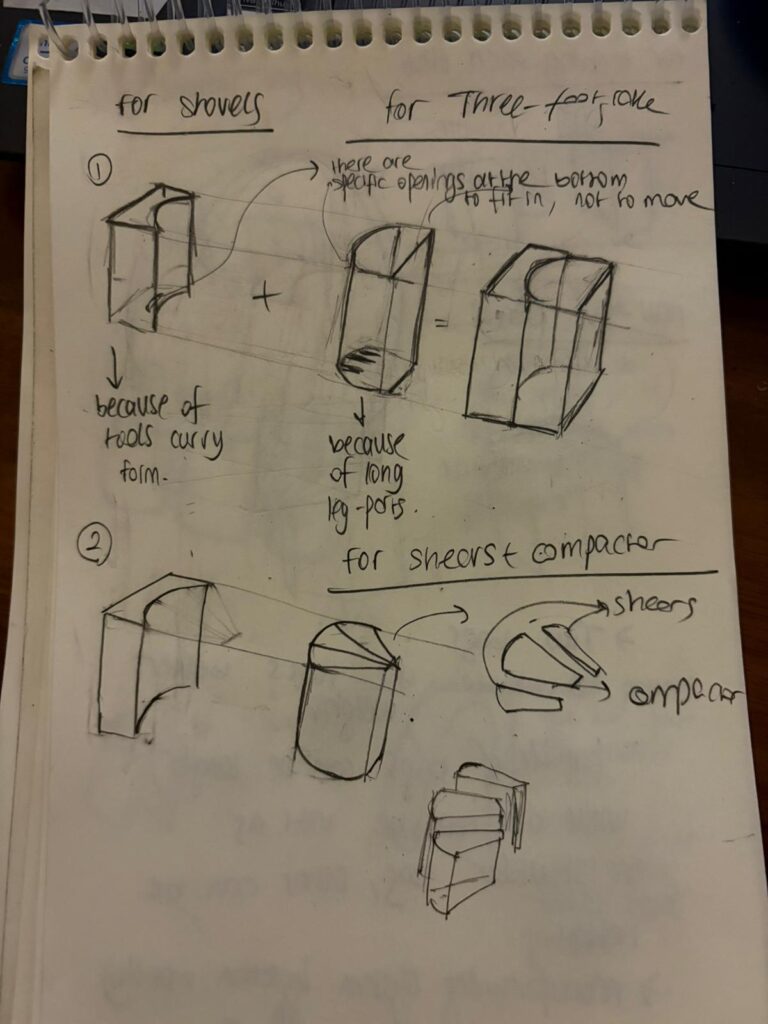 for shovels
for Three-foot rake
① there are
specific openings at the bottom
to fit in, not to move
+
=
because of
tools curvy
form.
because
of long
leg-parts.
②
for shears + compactor
shears
compactor